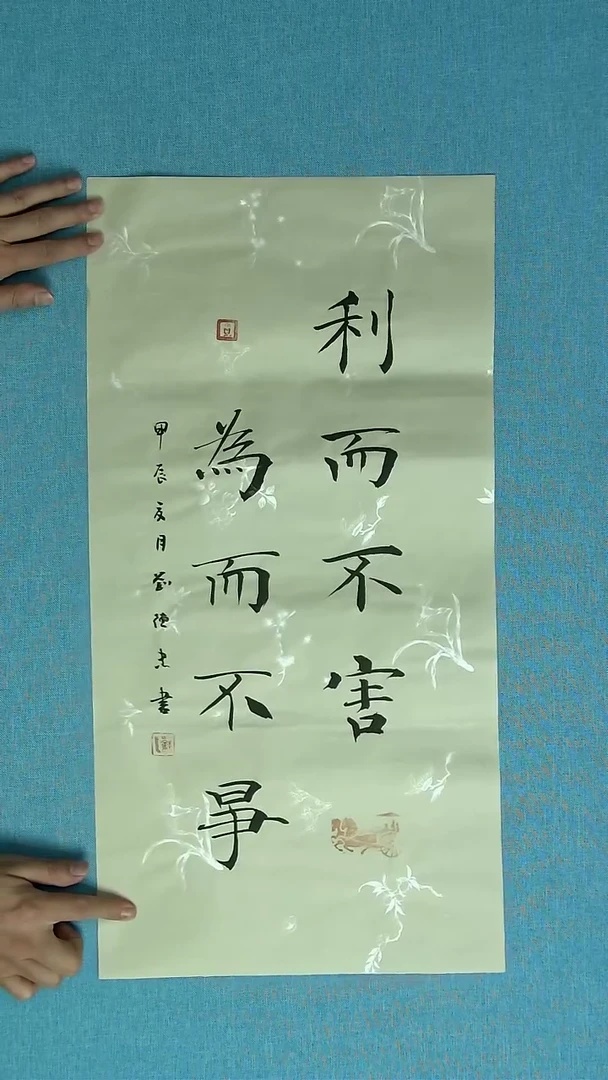 利而不害
為而不爭
甲辰夏月劉 書